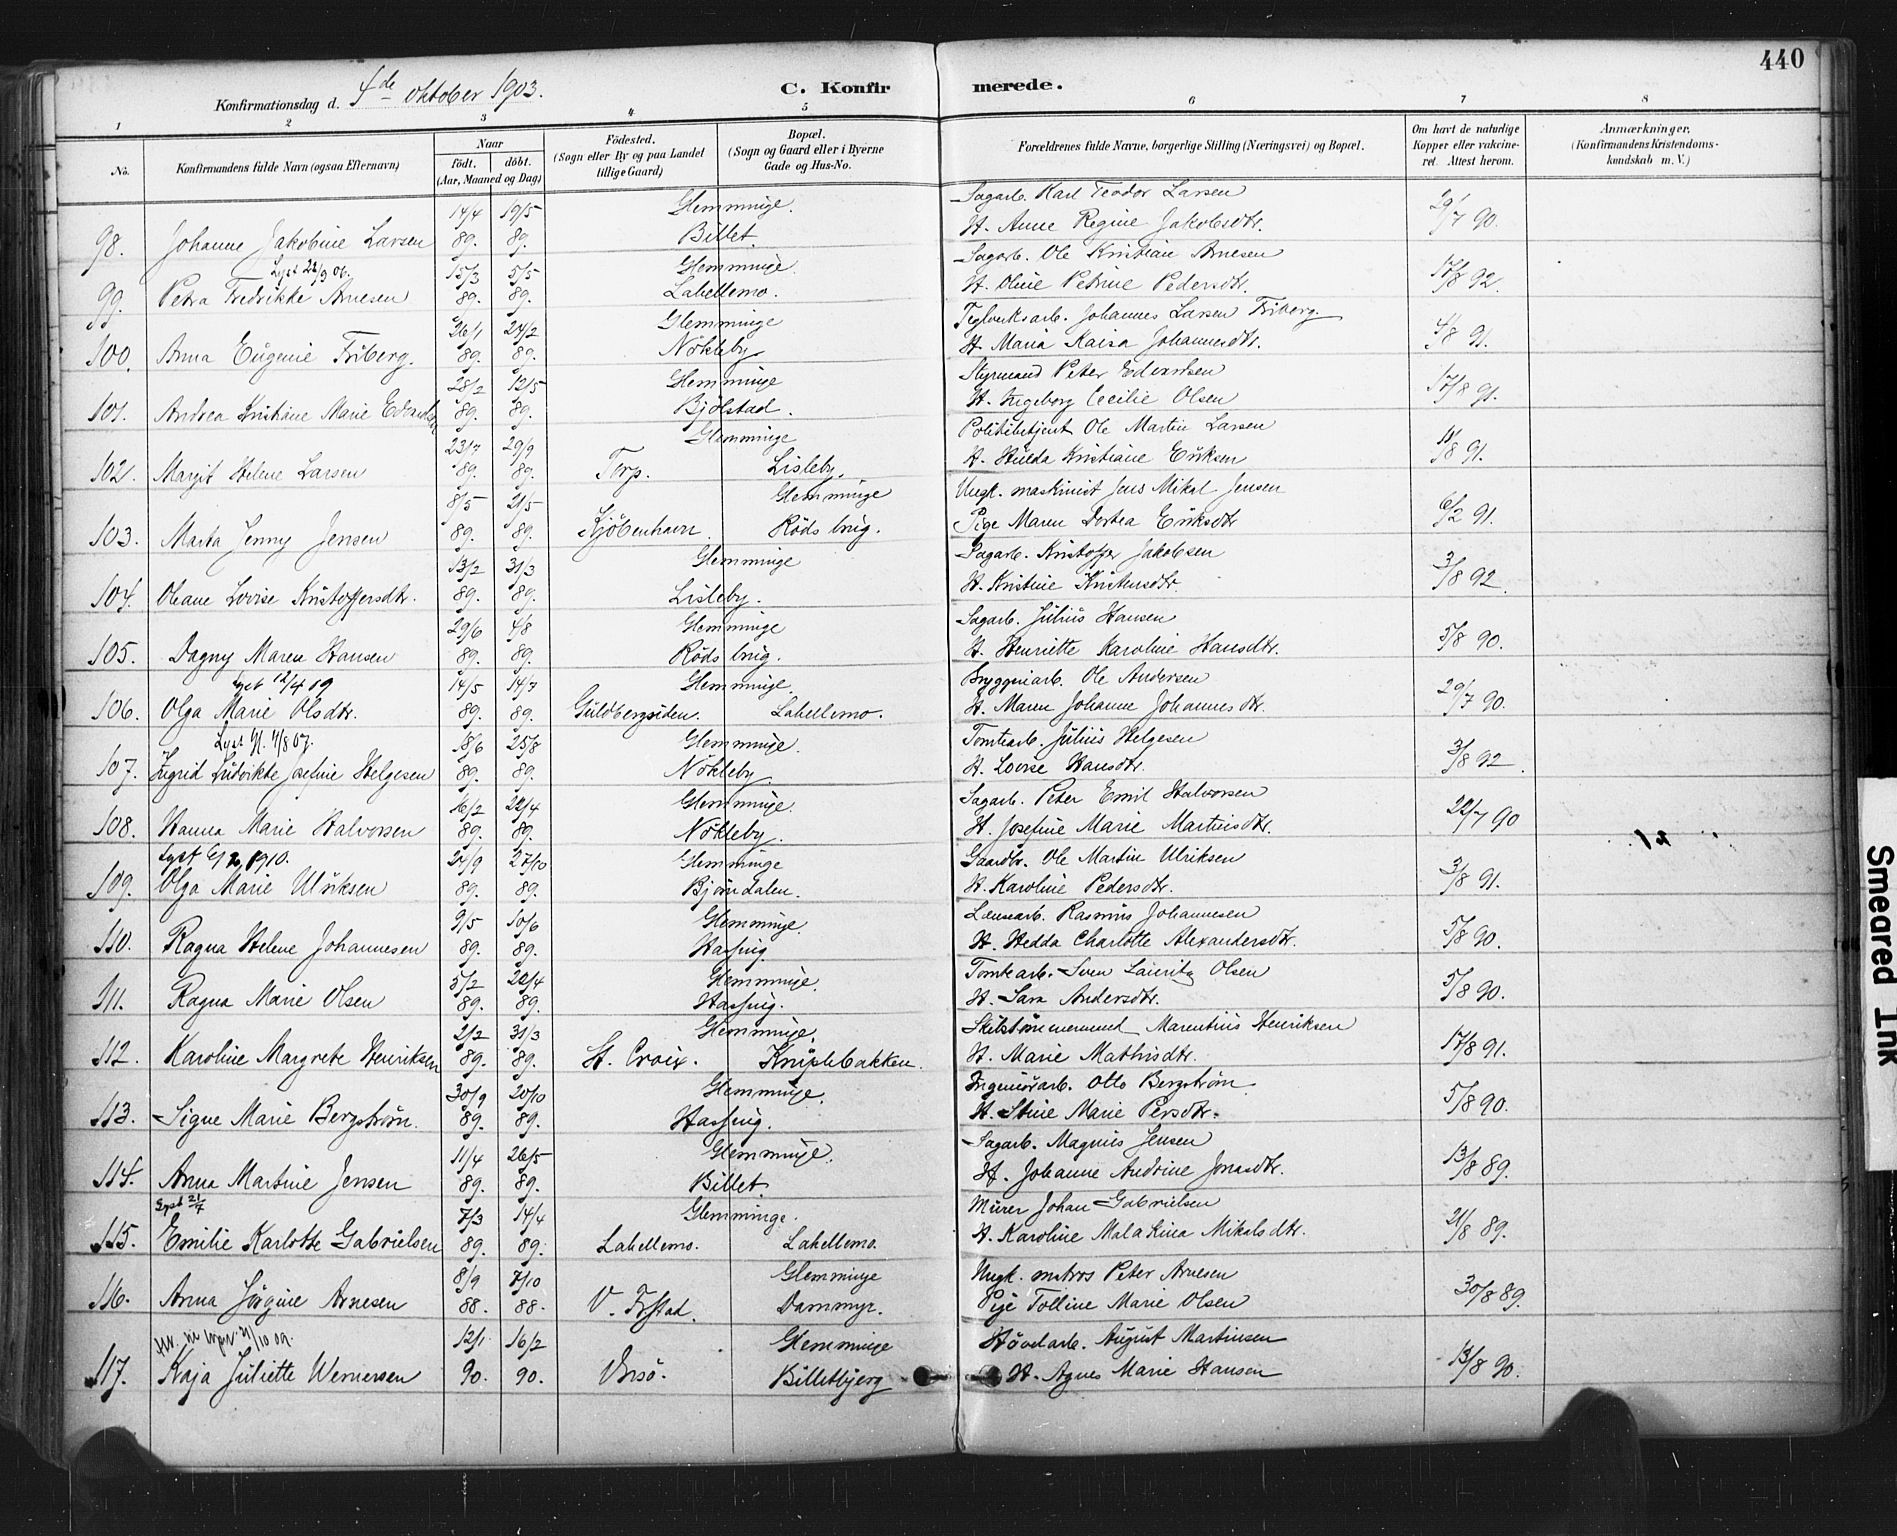 440
Konfirmationsdag d. 4de oktober 1903.
C. Konfirmerede.
1 2 3 4 5 6 7 8
No.
Konfirmandens fulde Navn (ogsaa Efternavn)
Naar
födt. döbt.
(Aar, Maaned og Dag)
Födested.
(Sogn eller By og paa Landet tillige Gaard)
Bopæl.
(Sogn og Gaard eller i Byerne Gade og Hus-No.
Forældrenes fulde Navne, borgerlige Stilling (Næringsvei) og Bopæl.
Om havt de naturlige Kopper eller vakcineret. Attest herom.
Anmærkninger.
(Konfirmandens Kristendomskundskab m. V.)
14/4 19/5 Glemminge. Sagarb. Karl Teodor Larsen 29/7 90.
98. Johanne Jakobine Larsen 89. 89. Billet. H. Anne Regine Jakobsdtr.
Lyst 22/9 06. 15/3 5/5 Glemminge. Sagarb. Ole Kristian Arnesen 17/8 92.
99. Petra Fredrikke Arnesen 89. 89. Lahellemo. H. Oline Petrine Pedersdtr.
26/1 24/2 Glemminge Teglverksarb. Johannes Larsen Friberg. 4/8 91.
100. Anna Eugenie Friberg. 89. 89. Nökleby. H. Maria Kaisa Johannesdtr.
28/2 12/5 Glemminge Styrmand Peter Edvardsen 17/8 91.
101. Andrea Kristiane Marie Edvardsen 89. 89. Bjölstad. H. Ingeborg Cecilie Olsen
23/7 29/9 Glemminge Politibetjent Ole Martin Larsen 11/8 91.
102. Margit Helene Larsen 89. 89. Torp. Lisleby. H. Hulda Kristiane Eriksen
8/5 21/5 Glemminge Ungk. maskinist Jens Mikal Jensen 6/2 91.
103. Marta Jenny Jensen 89. 89. Kjöbenhavn. Röds brug. Pige Maren Dortea Eriksdtr
13/2 31/3 Glemminge Sagarb. Kristoffer Jakobsen 3/8 92.
104. Oleane Lovise Kristoffersdtr. 89. 89. Lisleby. H. Kristine Kristensdtr.
29/6 4/8 Glemminge Sagarb. Julius Hansen 5/8 90.
105. Dagny Maren Hansen 89. 89. Röds brug. H. Henriette Karoline Hansdtr.
Lyst 12/4 09 14/5 14/7 Glemminge. Bryggeriarb. Ole Andersen 29/7 90.
106. Olga Marie Olsdtr. 89. 89. Guldbergsiden. Lahellemo. H. Maren Johanne Johannesdtr.
Lyst 11/8 07. 18/6 25/8 Glemminge. Tomtearb. Julius Helgesen 3/8 92.
107. Ingrid Ludvikke Josefine Helgesen 89. 89. Nökleby. H. Lovise Hansdtr.
16/2 22/4 Glemminge. Sagarb. Peter Emil Halvorsen 22/7 90
108. Hanna Marie Halvorsen 89. 89. Nökleby. H. Josefine Marie Martinsdtr.
Lyst 1910. 24/9 27/10 Glemminge Gaardbr. Ole Martin Ulriksen 3/8 91.
109. Olga Marie Ulriksen 89. 89. Bjørndalen. H. Karoline Pedersdtr.
9/5 10/6 Glemminge. Lænsearb. Rasmus Johannesen 5/8 90.
110. Ragna Helene Johannesen 89. 89. Hassing. H. Hedda Charlotte Alexandersdtr.
5/2 22/4 Glemminge. Tomtearb. Sven Lauritz Olsen 5/8 90.
111. Ragna Marie Olsen 89. 89. Hassing. H. Sara Andersdtr.
2/2 31/3 Glemminge. Skibstömmermand Marentius Henriksen 17/8 91.
112. Karoline Margrete Henriksen 89. 89. St. Croix. Kniplebakken. H. Marie Mathisdtr.
30/9 20/10 Glemminge. Ingeniörarb. Otto Bergström 5/8 90.
113. Signe Marie Bergström. 89. 89. Hassing. H. Stine Marie Persdtr.
11/4 26/5 Glemminge. Sagarb. Magnus Jensen 13/8 89.
114. Anna Martine Jensen 89. 89. Billet. H. Johanne Andrine Jonasdtr.
Lyst 2/7 7/3 14/4 Glemminge. Murer Johan Gabrielsen 21/8 89.
115. Emilie Karlotte Gabrielsen 89. 89. Lahellemo. Lahellemo. H. Karoline Malakina Mikelsdtr.
8/9 7/10 Glemminge Ungk. matros Peter Arnesen 30/8 89.
116. Anna Jörgine Arnesen 88. 88. V. Frstad. Dammyr. Pige Tolline Marie Olsen
21/10 09. 12/1 16/2 Glemminge Hövelarb. August Martinsen 13/8 90.
117. Kaja Juliette Wernersen 90. 90. Onsö. Billetbjerg H. Agnes Marie Hansen
Smeared Ink